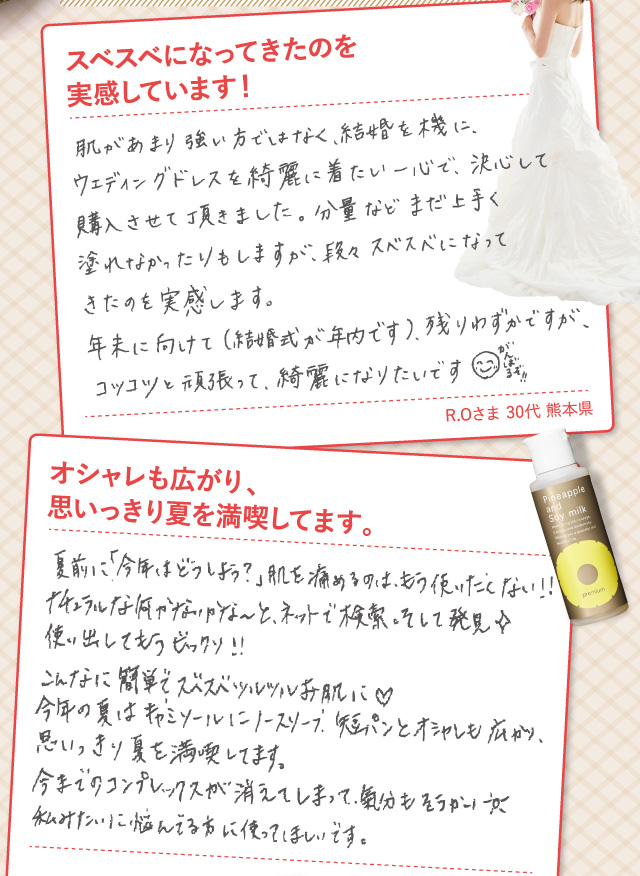 スベスベになってきたのを
実感しています！
肌があまり強い方ではなく、結婚を機に、
ウエディングドレスを綺麗に着たい一心で、決心して
購入させて頂きました。分量などまだ上手く
塗れなかったりもしますが、段々スベスベになって
きたのを実感します。
年末に向けて(結婚式が年内です)、残りわずかですが、
コツコツと頑張って、綺麗になりたいです
がんばるぞ!!
R.Oさま 30代 熊本県
オシャレも広がり、
思いっきり夏を満喫してます。
Pineapple
and
Soy milk
premium
夏前に「今年はどうしよう？」肌を痛めるのは、もう使いたくない!!
ナチュラルな何かないかな〜と、ネットで検索。そして発見
使い出してもうビックリ!!
こんなに簡単でスベスベツルツルお肌に♡
今年の夏はキャミソールにノースリーブ 短パンとオシャレも広がり、
思いっきり夏を満喫してます。
今までのコンプレックスが消えてしまって、気分もそうかい
私みたいに悩んでる方に使ってほしいです。